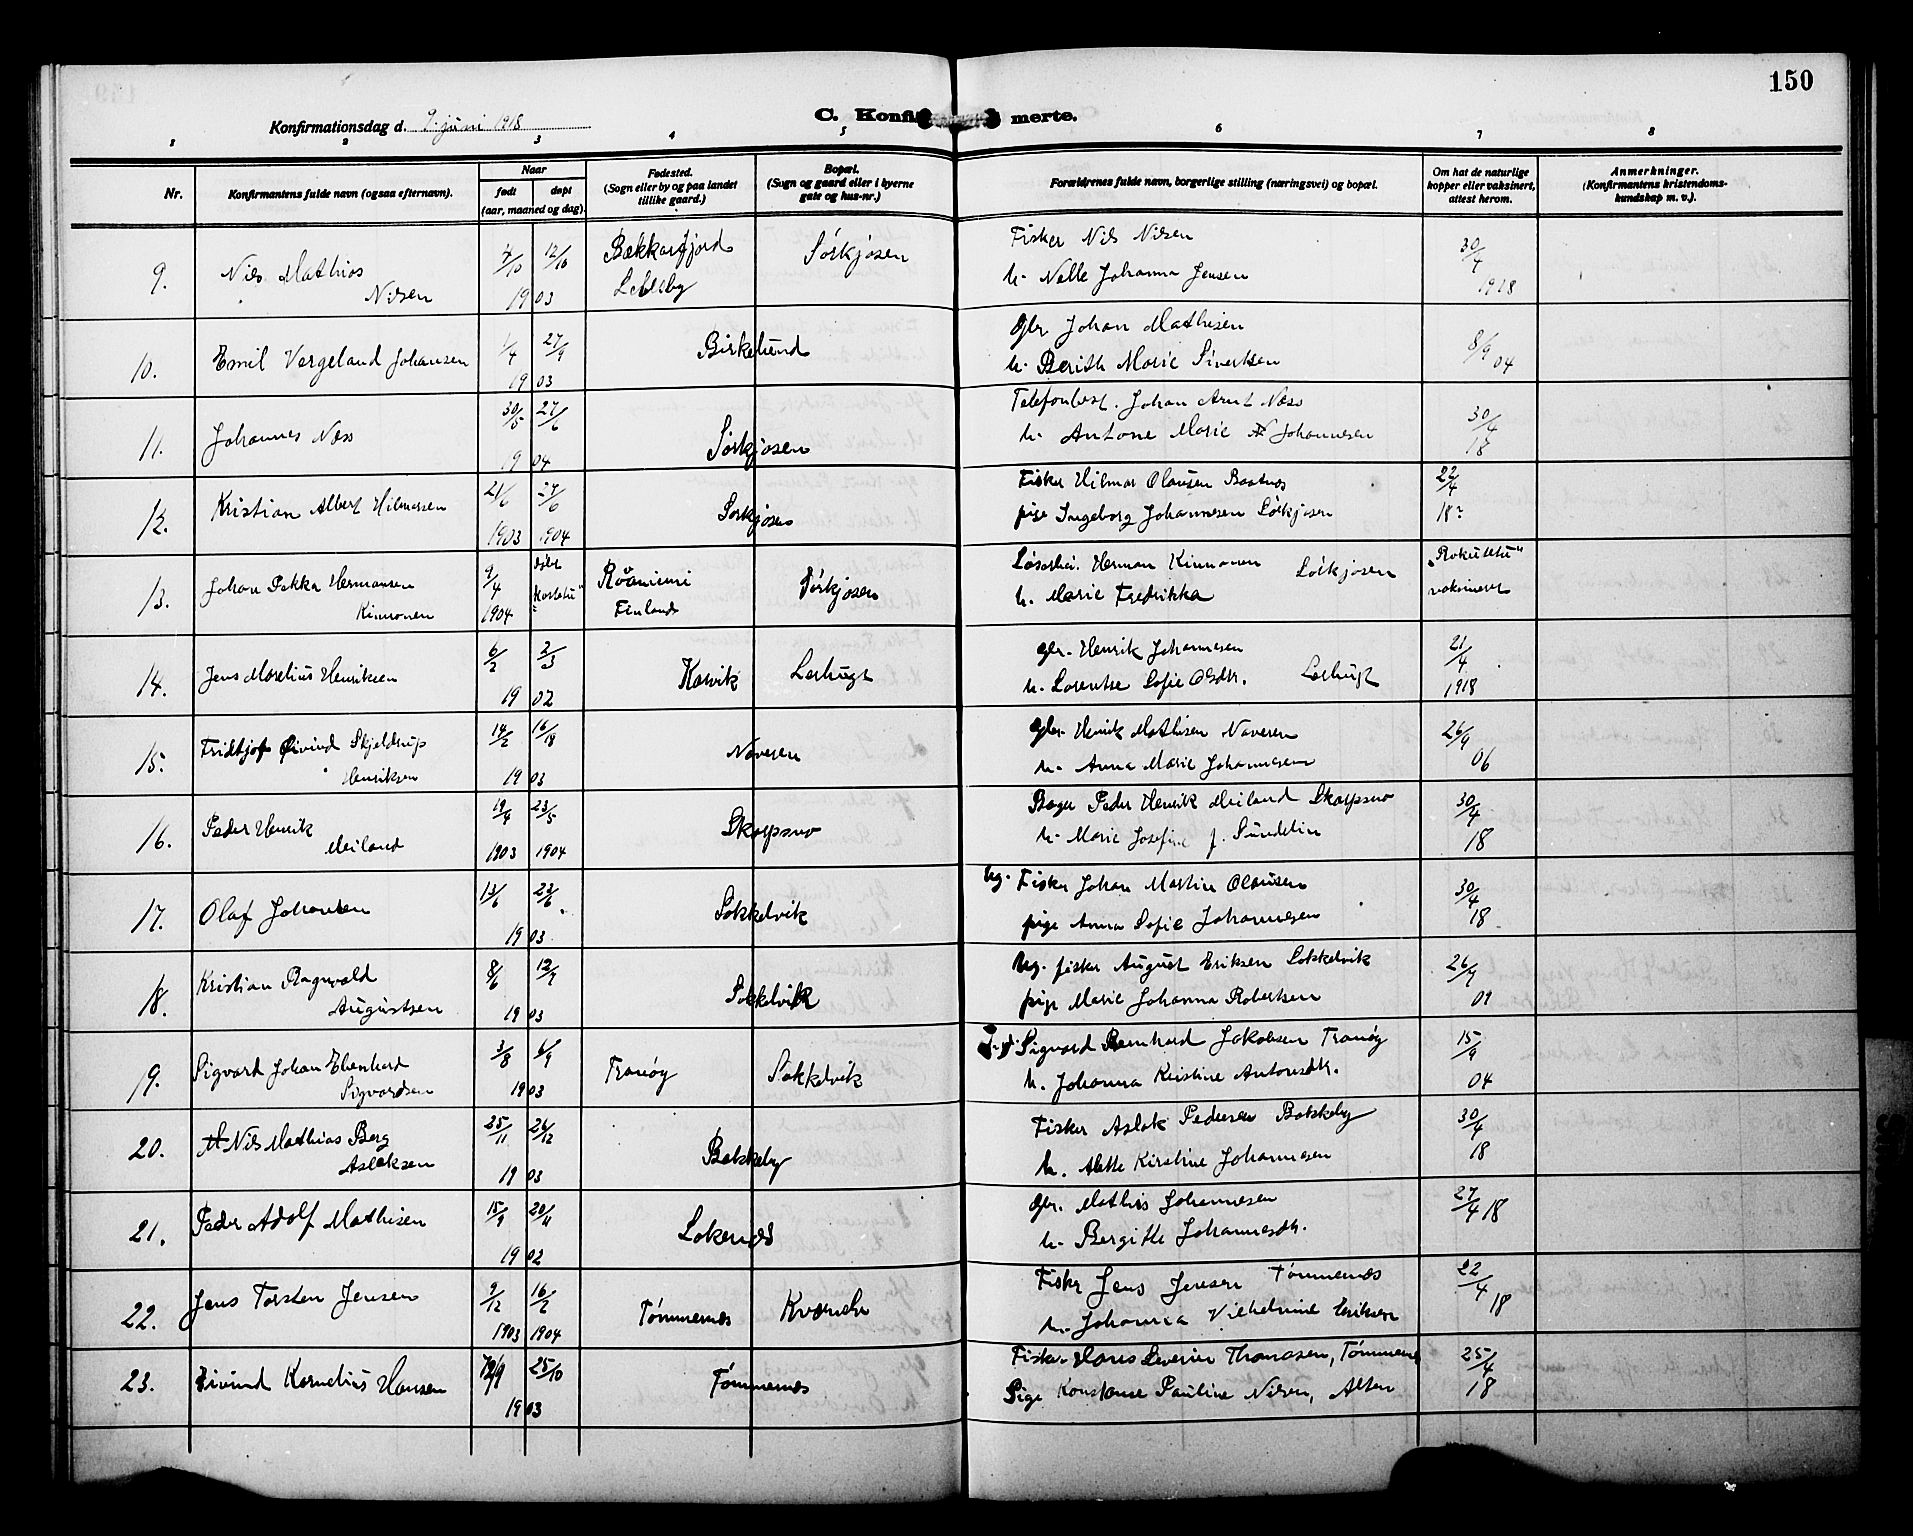 150
Konfirmationsdag d. 9. juni 1918
C. Konfi merte.
1 2 3 4 5 6 7 8
Nr.
Konfirmantens fulde navn (ogsaa efternavn).
Naar
født døpt
(aar, maaned og dag).
Fødested.
(Sogn eller by og paa landet
tillike gaard.)
Bopæl.
(Sogn og gaard eller i byerne
gate og hus-nr.)
Forældrenes fulde navn, borgerlige stilling (næringsvei) og bopæl.
Om hat de naturlige
kopper eller vaksinert,
attest herom.
Anmerkninger.
(Konfirmantens kristendoms-
kundskap m. v.).
9. Nils Mathias 7/10 12/10 Bekkarfjord Sørkjosen Fisker Nils Nilsen 30/4
Nilsen 19 03 Lebesby h. Nelle Johanna Jensen 1918
10. Emil Vergeland Johansen 1/4 27/9 Birkelund gbr Johan Mathisen 8/9
19 03 h. Berith Marie Sivertsen 04
11. Johannes Næss 30/5 27/6 Sørkjosen Telefonbest. Johan Arnt Næss 30/4
19 04 h. Antone Marie Johannesen 18
12. Kristian Albert Hilmarsen 21/6 27/6 Sørkjosen Fisker Hilmar Olausen Baatnes 22/4
1903 1904 pige Ingeborg Johannesen Sørkjosen 18
13. Johan Pekka Hermansen 9/4 døbt Rovaniemi Sørkjosen Løsarbei. Herman Kinnonen Sørkjosen "Rokuttetu"
Kinnonen 1904 "Kastettu" Finland h. Marie Fredrikka vaksinert
14. Jens Marelius Henriksen 6/2 2/3 Karvik Leshugt gbr. Henrik Johannesen 21/4
19 02 h. Lorentse Sofie Olsdtr. Leshugt 1918
15. Fridtjof Øivind Skjeldrup 14/2 16/18 Naveren gbr. Henrik Mathisen Naveren 26/9
Henriksen 19 03 h. Anna Marie Johannesen 06
16. Peder Henrik 19/4 23/5 Skarpsno Bager Peder Henrik Meiland Skarpsno 30/4
Meiland 1903 1904 h. Marie Josefine f. Sundelin 18
17. Olaf Johansen 13/6 23/6 Sokkelvik Ug. Fisker Johan Martin Olausen 30/4
19 03 pige Anna Sofie Johannesen 18
18. Kristian Ragnvald 8/6 12/7 Sokkelvik Ug. fisker August Eriksen Sokkelvik 26/9
Augustsen 19 03 pige Marie Johanna Robertsen 09
19. Sigvard Johan Ebenhard 3/8 6/9 Tranøy Sokkelvik Sigvard Bernhard Jakobsen Tranøy 15/9
Sigvardsen 19 03 h. Johanna Kristine Antonsdtr. 04
20. Nils Mathias Berg 25/11 26/12 Bakkeby Fisker Aslak Pedersen Bakkeby 30/4
Aslaksen 19 03 h. Mette Kirstine Johannesen 18
21. Peder Adolf Mathisen 15/9 20/11 Lokenes gbr. Mathis Johannesen 27/4 18
19 02 h. Bergitte Johannesdtr.
22. Jens Torsten Jensen 9/12 16/2 Tømmernes Kvænelv Fisker Jens Jensen Tømmernes 22/4
1903 1904 h. Johanna Vilhelmine Eriksen 18
23. Eivind Kornelius Hansen 12/9 25/10 Tømmernes Fisker Hans Severin Thomasen, Tømmernes 25/4
19 03 Pige Konstanse Pauline Nilsen, Alten 18